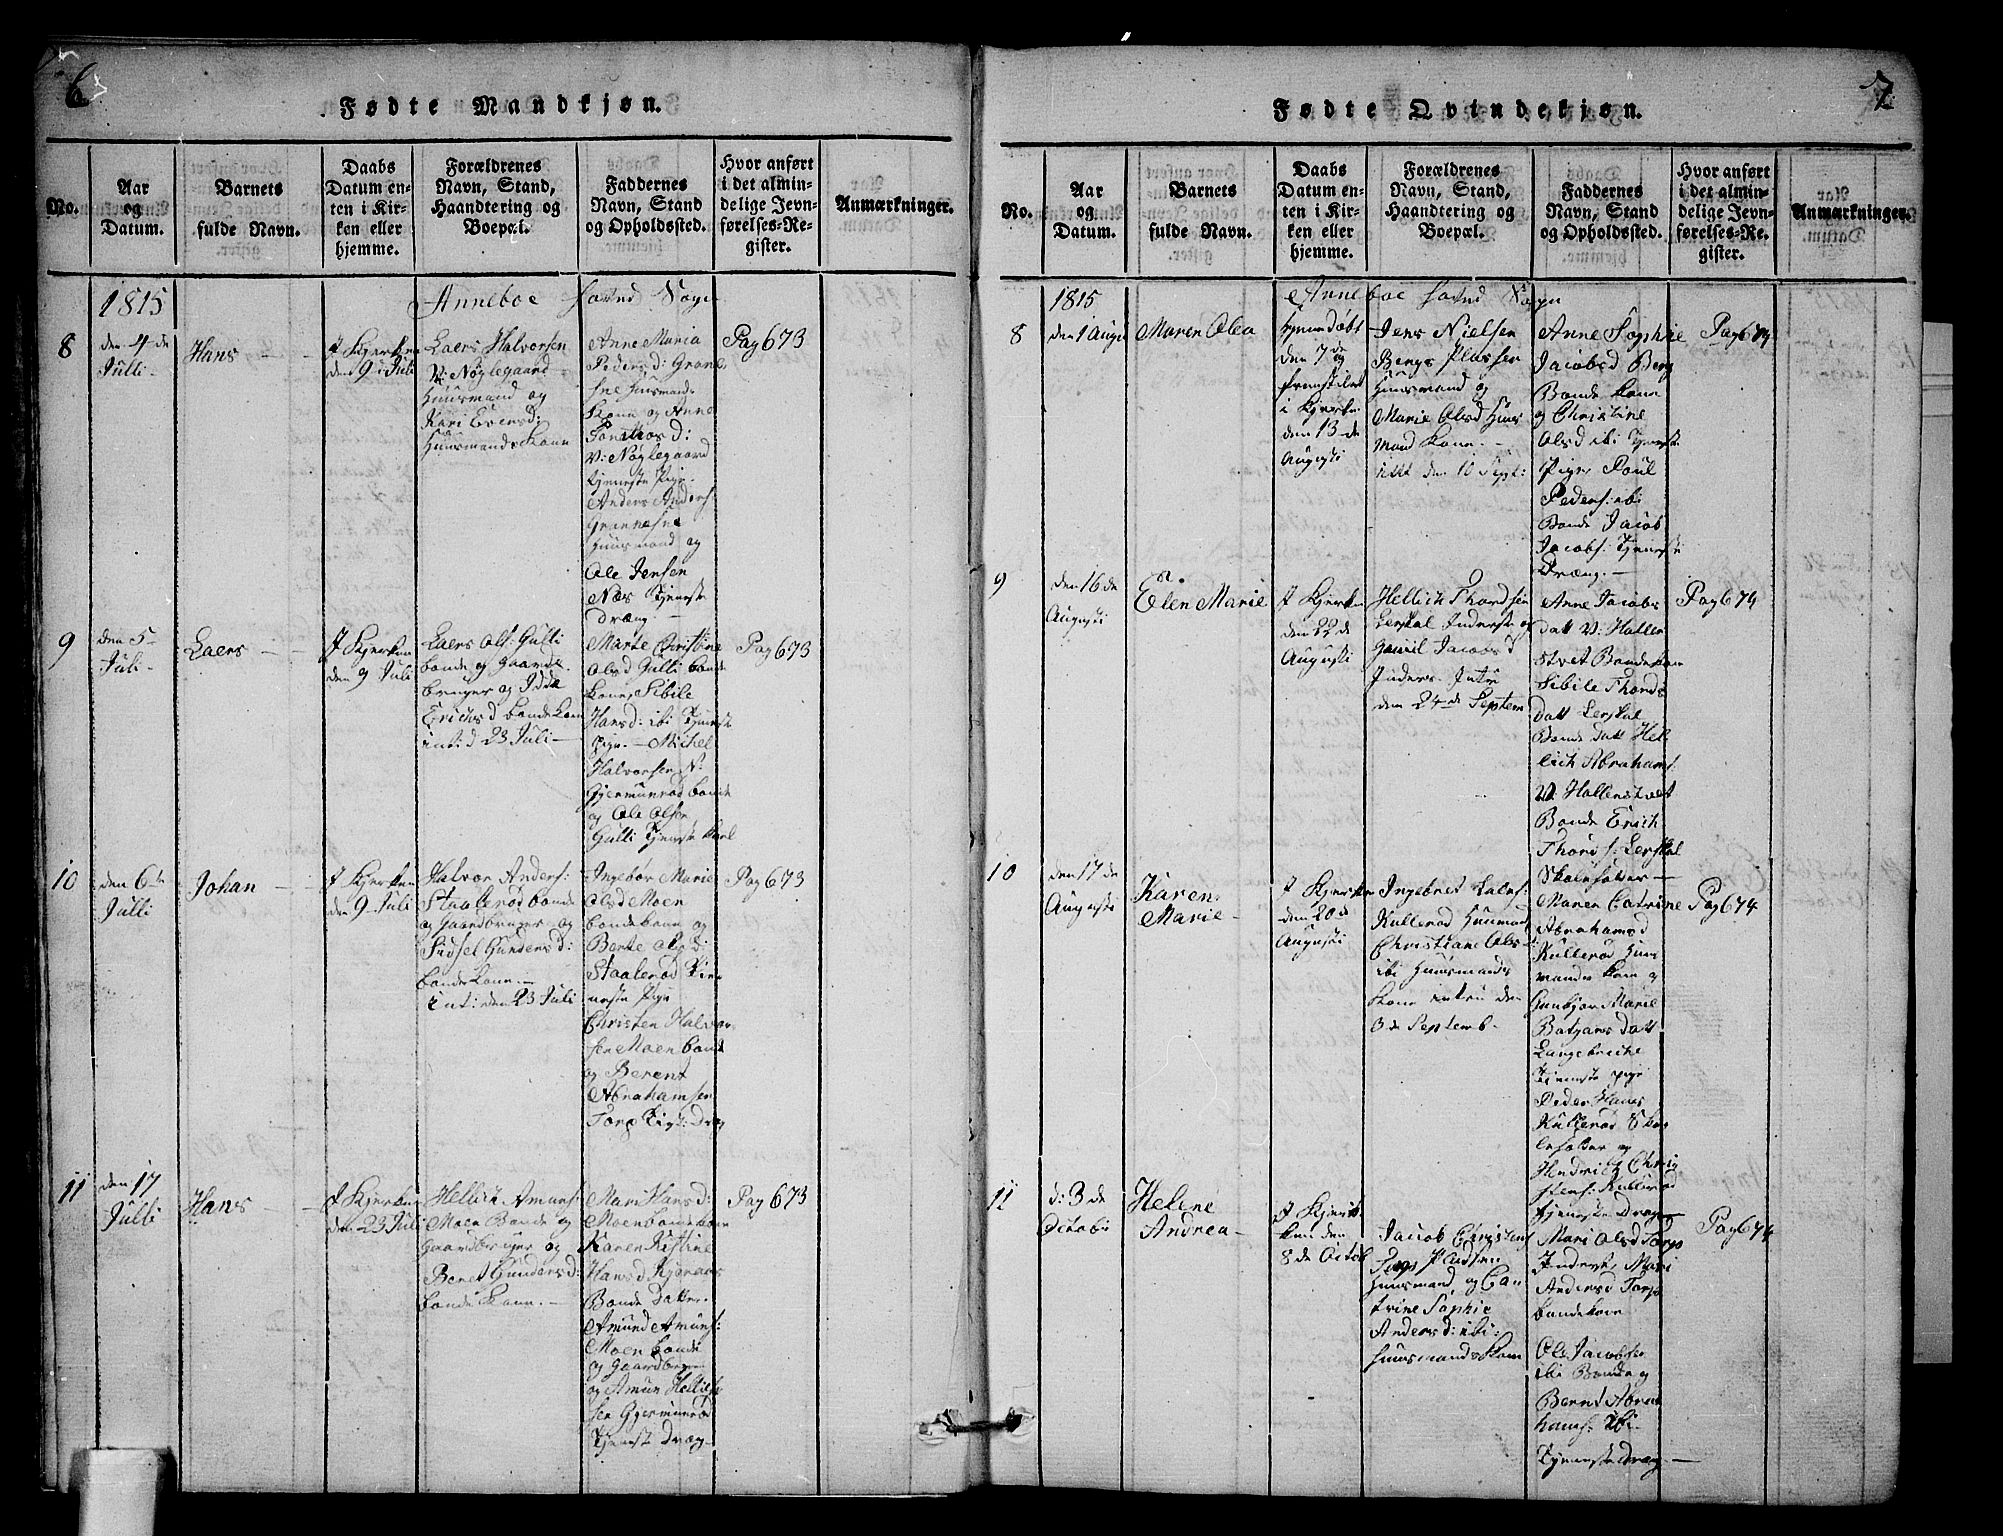 6
Fødte Mandkjøn.
No.
Aar
og
Datum.
Barnets
fulde Navn.
Daabs
Datum en-
ten i Kir-
ken eller
hjemme.
Forældrenes
Navn, Stand,
Haandtering og
Boepæl.
Faddernes
Navn, Stand
og Opholdssted.
Hvor anført
i det almin-
delige Jevn-
førelses-Re-
gister.
Anmærkninger.
1815
Anneboe Sogn
8
den 4de
Julli
Hans
I Kjerken
den 9 Juli
Laers Halvorsen
V: Nøglegaard
Huusmand og
Kari Evensd:
Huusmands Kone
Anne Maria
Pedersd:
Huusmands
Kone og Anne
V: Nøglegaard
tjeneste Pige
Anders Anders:
Huusmand og
Ole Jensen
Næs tjeneste
dræng.
Pag 673
9
den 5
Juli
Laers
I Kjerken
den 9 Juli
Laers Ols: Gulli
bonde og Gaard
bruger og Idde
Ericksd bonde Kone
int: d 23 Juli
Marte Christine
Olsd Gulli bonde
Kone, Sibile
Hansd: ibi tjeneste
Pige. Michel
Halvorsen N:
Gjermunrød bonde
og Ole Olsen
Gulli tjeneste Karl
Pag 673
10
den 6te
Julli
Johan
I Kjerken
den 9 Juli
Halvor Anders:
Staalerød bonde
og Gaardbruger og
Sidsel Gundersd:
bonde Kone
int: den 23 Juli
Ingebør Marie
Olsd Moen
bondekone og
Berte Olsd:
Staalerød
neste Pige
Christen Halvor
sen Moen bonde
og Berent
Abrahamsen
Pag 673
11
den 17
Julli
Hans
I Kjerken
den 23 Juli
Hellich Amuns:
Moen Bonde og
Gaardbruger og
Beret Gundersd:
bonde Kone.
Mari Hansd:
Moen bondekone
Karen Kistine
Hansd Kjeraas
Bonde Datter.
Amund Amuns:
Moen bonde
og Gaardbruger
og Amun Hellich
sen Gjermunrød
tjeneste dræng
Pag 673
7
Fødte Qvindekjøn.
No.
Aar
og
Datum.
Barnets
fulde Navn.
Daabs
Datum en-
ten i Kir-
ken eller
hjemme.
Forældrenes
Navn, Stand,
Haandtering og
Boepæl.
Faddernes
Navn, Stand
og Opholdssted.
Hvor anført
i det almin-
delige Jevn-
førelses-Re-
gister.
Anmærkninger.
1815
Anneboe Sogn
8
den 1 Augu
Maren Olea
Hjemmedøbt
den 7de og
fremstilet
i Kjerken
den 13de
Augusti
Jens Nielsen
Bergs Pladsen
Huusmand og
Marie Olsd Huus
mand Kone.
int: den 10 Sept:
Anne Sophie
Jacobsd Berg
Bonde kone
og Christine
Olsd ibi tjeneste
Pige, Poul
Peders: ibi
Bonde Jacob
Jacobs: tjeneste
Dræng.
Pag 674
9
den 16de
Augusti
Elen Marie
I Kjerken
den 22de
Augusti
Hellich Thordsen
Lerskal Inderste og
Gunil Jacobsd
Inders. Intr
den 24de Septem
Anne Jacobs
datt V: Hallen
stvet Bondekone
Sibile Thords
datt Lerskal
Bonde datt Hel
lich Abrahams
V: Hallenstvet
Bonde Erich
Thords: Lerskal
Skoleholder
Pag 674
10
den 17de
Augusti
Karen
Marie
I Kjerken
den 20de
Augusti
Ingebret
Kullerød Huusmand
Christiane Ols
ibi Huusmands
Kone intru den
3de Septemb.
Maren Catrine
Abrahamsd
Kullerød Huus
mands Kone og
Gunbjor Marie
datt
Langebrekke
tjeneste pige
Peder Hans
Kullerød Skoe
leholder og
Hendrich Chris
tens: Kullerød
tjeneste Dræng
Pag 674
11
d: 3de
Octobr
Helene
Andrea
I Kjerk
ken den
8de Octob
Jacob Christens
Pladsen
Huusmand og Ca
trine Sophie
Andersd: ibi:
Huusmands Kone
Mari Olsd Torp
Inderst, Mari
Andersd Torp
bondekone
Ole Jacobsen
ibi Bonde og
Bernt Abra
hams: ibi
tjenestedræng
Pag 674